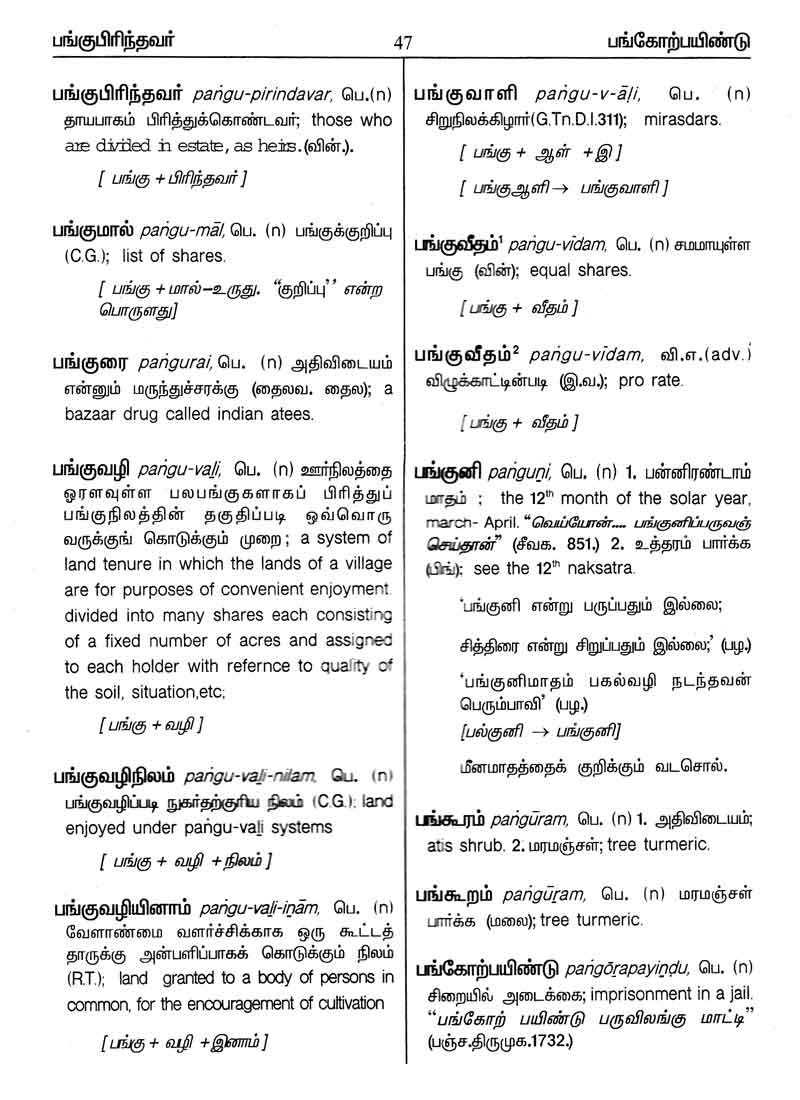 பங்குபிரிந்தவர் 47 பங்கோற்பயிண்டு
பங்குபிரிந்தவர் paṅgu-pirindavar, பெ.(n)
தாயபாகம் பிரித்துக்கொண்டவர்; those who
are divided in estate, as heirs.(வின்.).
[ பங்கு +பிரிந்தவர் ]
பங்குமால் paṅgu-māl, பெ. (n) பங்குக்குறிப்பு
(C.G.); list of shares.
[ பங்கு +மால்–உருது. “குறிப்பு’’ என்ற
பொருளது]
பங்குரை paṅgurai, பெ. (n) அதிவிடையம்
என்னும் மருந்துச்சரக்கு (தைலவ. தைல); a
bazaar drug called indian atees.
பங்குவழி paṅgu-vaḻi, பெ. (n) ஊர்நிலத்தை
ஓரளவுள்ள பலபங்குகளாகப் பிரித்துப்
பங்குநிலத்தின் தகுதிப்படி ஒவ்வொரு
வருக்குங் கொடுக்கும் முறை ; a system of
land tenure in which the lands of a village
are for purposes of convenient enjoyment
divided into many shares each consisting
of a fixed number of acres and assigned
to each holder with refernce to quality of
the soil, situation,etc;
[ பங்கு +வழி ]
பங்குவழிநிலம் paṅgu-vaḻi-nilam, பெ. (n)
பங்குவழிப்படி நுகர்தற்குரிய நிலம் (C.G.); land
enjoyed under paṅgu-vaḻi systems
[ பங்கு + வழி +நிலம் ]
பங்குவழியினாம் paṅgu-vaḻi-iṉām, பெ. (n)
வேளாண்மை வளர்ச்சிக்காக ஒரு கூட்டத்
தாருக்கு அன்பளிப்பாகக் கொடுக்கும் நிலம்
(R.T.); land granted to a body of persons in
common, for the encouragement of cultivation
[ பங்கு + வழி +இனாம் ]
பங்குவாளி paṅgu-v-āḷi, பெ. (n)
சிறுநிலக்கிழார்(G.Tn.D.I.311); mirasdars.
[ பங்கு + ஆள் +இ ]
[ பங்குஆளி → பங்குவாளி ]
பங்குவீதம்¹ paṅgu-vīdam, பெ. (n) சமமாயுள்ள
பங்கு (வின்); equal shares.
[ பங்கு + வீதம் ]
பங்குவீதம்² paṅgu-vīdam, வி.எ.(adv.)
விழுக்காட்டின்படி (இ.வ.); pro rate.
[ பங்கு + வீதம் ]
பங்குனி paṅguṉi, பெ. (n) 1. பன்னிரண்டாம்
மாதம் ; the 12th month of the solar year,
march- April. “வெய்யோன்.... பங்குனிப்பருவஞ்
செய்தான்” (சீவக. 851.) 2. உத்தரம் பார்க்க
(பிங்); see the 12th naksatra.
‘பங்குனி என்று பருப்பதும் இல்லை;
சித்திரை என்று சிறுப்பதும் இல்லை;’ (பழ.)
‘பங்குனிமாதம் பகல்வழி நடந்தவன்
பெரும்பாவி’ (பழ.)
[பல்குனி → பங்குனி]
மீனமாதத்தைக் குறிக்கும் வடசொல்.
பங்கூரம் paṅgūram, பெ. (n) 1. அதிவிடையம்;
atis shrub. 2. மரமஞ்சள்; tree turmeric.
பங்கூறம் paṅgūṟam, பெ. (n) மரமஞ்சள்
பார்க்க (மலை); tree turmeric.
பங்கோற்பயிண்டு paṅgōṟapayiṇḍu, பெ. (n)
சிறையில் அடைக்கை; imprisonment in a jail.
“பங்கோற் பயிண்டு பருவிலங்கு மாட்டி”
(பஞ்ச.திருமுக.1732.)